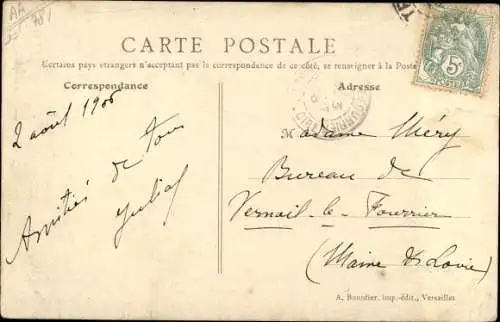 CARTE POSTALE
Certains pays étrangers n'acceptant pas la correspondance de ce côté, se renseigner à la Poste
Correspondance
Adresse
2 août 1906
Amitiés de tous
M adame Méry
Bureau de
Vernoil-le-Fourrier
(Maine & Loire)
5c
A. Bourdier, imp.-édit., Versailles